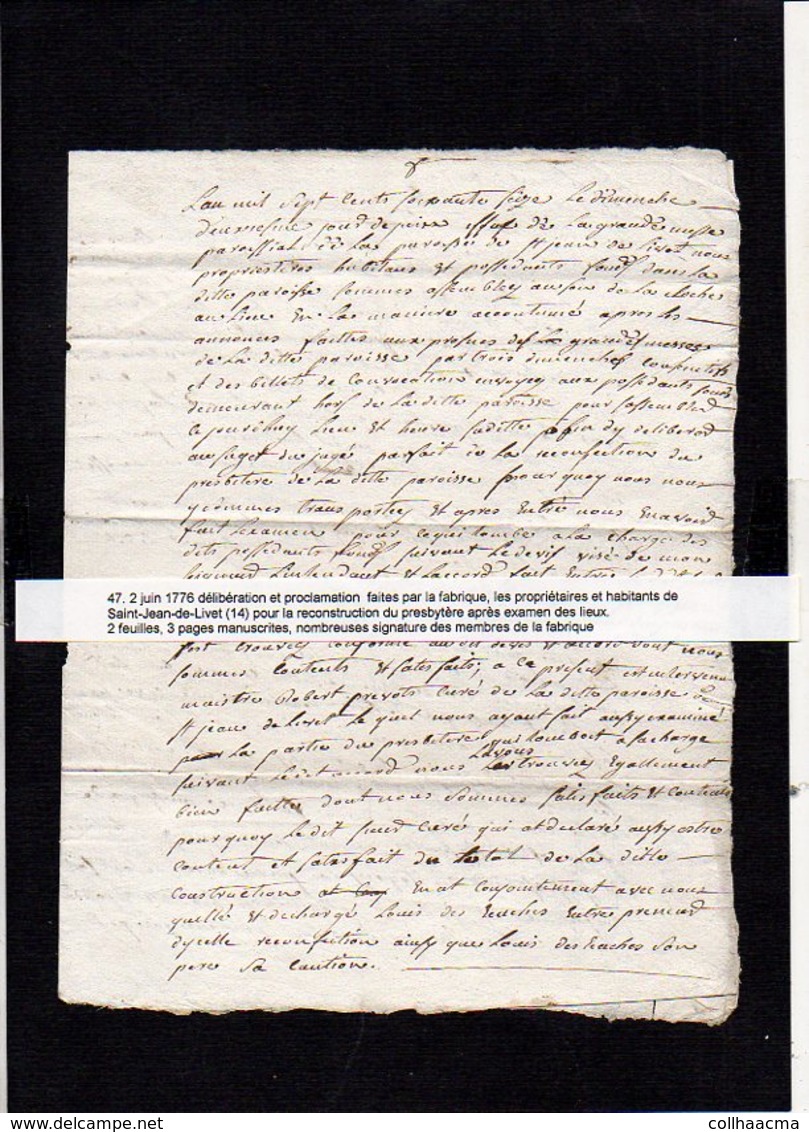 Lan mil Sept Cents soixante seize Le dimenche
deuxiesme jour de juin issue de La grande messe
paroissialle de La paroisse de St jean de livet nous
proprietéres habitans et possedants fonds dans La
ditte paroisse sommes assembley au son de La cloche
au Lieu En La maniere accoutumé apres les
annonces faittes aux prosnes des La grandes messes
de La ditte paroisse par trois dimenches consecutifs
et des billets de Convocation envoyez aux possedants fonds
demeurant hors de La ditte paroisse pour sassembler
ce jourdhuy Lieu et heure susditte afin dy deliberer
au sujet du jugé parfait de La reconfection du
presbitere de La ditte paroisse pourquoy nous nous
y sommes transportez et apres Entre nous En avoir
fait Lexamen pour ce qui tombe a La charge des
dits possedants fonds suivant Le devis visé de mon
seigneur Lintendant et Laccord fait Entre
47. 2 juin 1776 délibération et proclamation faites par la fabrique, les propriétaires et habitants de
Saint-Jean-de-Livet (14) pour la reconstruction du presbytère après examen des lieux.
2 feuilles, 3 pages manuscrites, nombreuses signature des membres de la fabrique
fort trouvez conforme au dit devis et accord dont nous
sommes Contents et satisfaits; a Ce present est intervenu
maistre Robert prevots curé de La ditte paroisse de
St jean de livet Le quel nous ayant fait aussy examiné
pour La partie du presbitere qui tomboit a sa charge
suivant Le dit accord nous Lavons trouvez Egallement
bien faitte dont nous sommes satisfaits et Contents
pourquoy Le dit sieur curé qui at declaré aussy estre
content et satisfait du total de La ditte
Construction En at conjointement avec nous
quitté et dechargé Louis des haches Entrepreneur
dycelle reconfection ainsy que Louis des haches son
pere sa caution.
Les auteurs : collhaacma